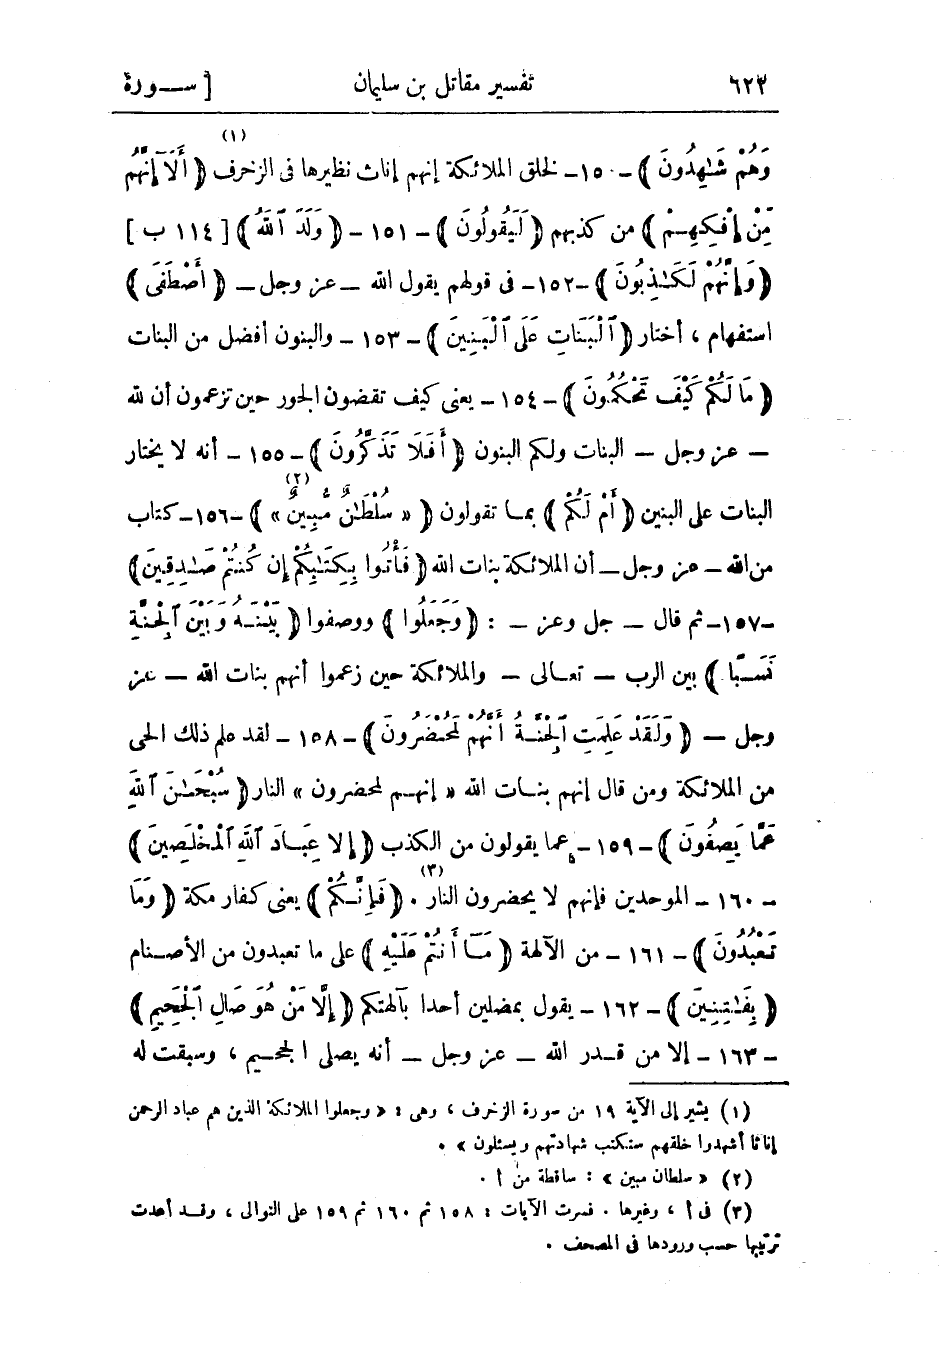 ٦٢٣ تفسير مقاتل بن سليمان [ ســورة
وَهُمْ شَـٰهِدُونَ ) -١٥٠- لخلق الملائكة إنهم إناث نظيرها فى الزخرف (١) ( أَلَآ إِنَّهُم
مِّنْ إِفْكِهِـمْ ) من كذبهم ( لَيَقُولُونَ ) -١٥١- ( وَلَدَ ٱللَّهُ ) [ ١١٤ ب ]
( وَإِنَّهُمْ لَكَـٰذِبُونَ ) -١٥٢- فى قولهم يقول الله — عز وجل — ( أَصْطَفَى )
استفهام ، أختار ( ٱلْبَنَاتِ عَلَى ٱلْبَنِينَ ) -١٥٣- والبنون أفضل من البنات
( مَا لَكُمْ كَيْفَ تَحْكُمُونَ ) -١٥٤- يعنى كيف تقضون الجور حين تزعمون أن لله
— عز وجل — البنات ولكم البنون ( أَفَلَا تَذَكَّرُونَ ) -١٥٥- أنه لا يختار
البنات على البنين ( أَمْ لَكُمْ ) بمـا تقولون ( « سُلْطَـٰنٌ مُّبِينٌ » (٢) ) -١٥٦- كتاب
من الله — عز وجل — أن الملائكة بنات الله ( فَأْتُوا بِكِتَـٰبِكُمْ إِن كُنتُمْ صَـٰدِقِينَ )
-١٥٧- ثم قال — جل وعز — : ( وَجَعَلُوا ) ووصفوا ( بَيْنَـهُ وَبَيْنَ ٱلْجِنَّةِ
نَسَـبًا ) بين الرب — تعـالى — والملائكة حين زعموا أنهم بنات الله — عز
وجل — ( وَلَقَدْ عَلِمَتِ ٱلْجِنَّـةُ أَنَّهُمْ لَمُحْضَرُونَ ) -١٥٨- لقد علم ذلك الحى
من الملائكة ومن قال إنهم بنـات الله « إنهـم لمحضرون » النار ( سُبْحَـٰنَ ٱللَّهِ
عَمَّا يَصِفُونَ ) -١٥٩- عما يقولون من الكذب ( إِلا عِبَـادَ ٱللَّهِ ٱلْمُخْلَصِينَ )
-١٦٠- الموحدين فإنهم لا يحضرون النار (٣) . ( فَإِنَّـكُمْ ) يعنى كفار مكة ( وَمَا
تَعْبُدُونَ ) -١٦١- من الآلهة ( مَـآ أَنتُمْ عَلَيْهِ ) على ما تعبدون من الأصـنام
( بِفَـٰتِنِينَ ) -١٦٢- يقول بمضلين أحدا بآلهتكم ( إِلَّا مَنْ هُوَ صَالِ ٱلْجَحِيمِ )
-١٦٣- إلا من قـدر الله — عز وجل — أنه يصلى الجحـيم ، وسبقت له
(١) يشير إلى الآية ١٩ من سورة الزخرف ، وهى : « وجعلوا الملائكة الذين هم عباد الرحمن
إناثا أشهدوا خلقهم ستكتب شهادتهم ويسئلون » .
(٢) « سلطان مبين » : ساقطة من أ .
(٣) فى أ ، وغيرها . فسرت الآيات : ١٥٨ ثم ١٦٠ ثم ١٥٩ على التوالى ، وقـد أعدت
ترتيبها حسب ورودها فى المصحف .